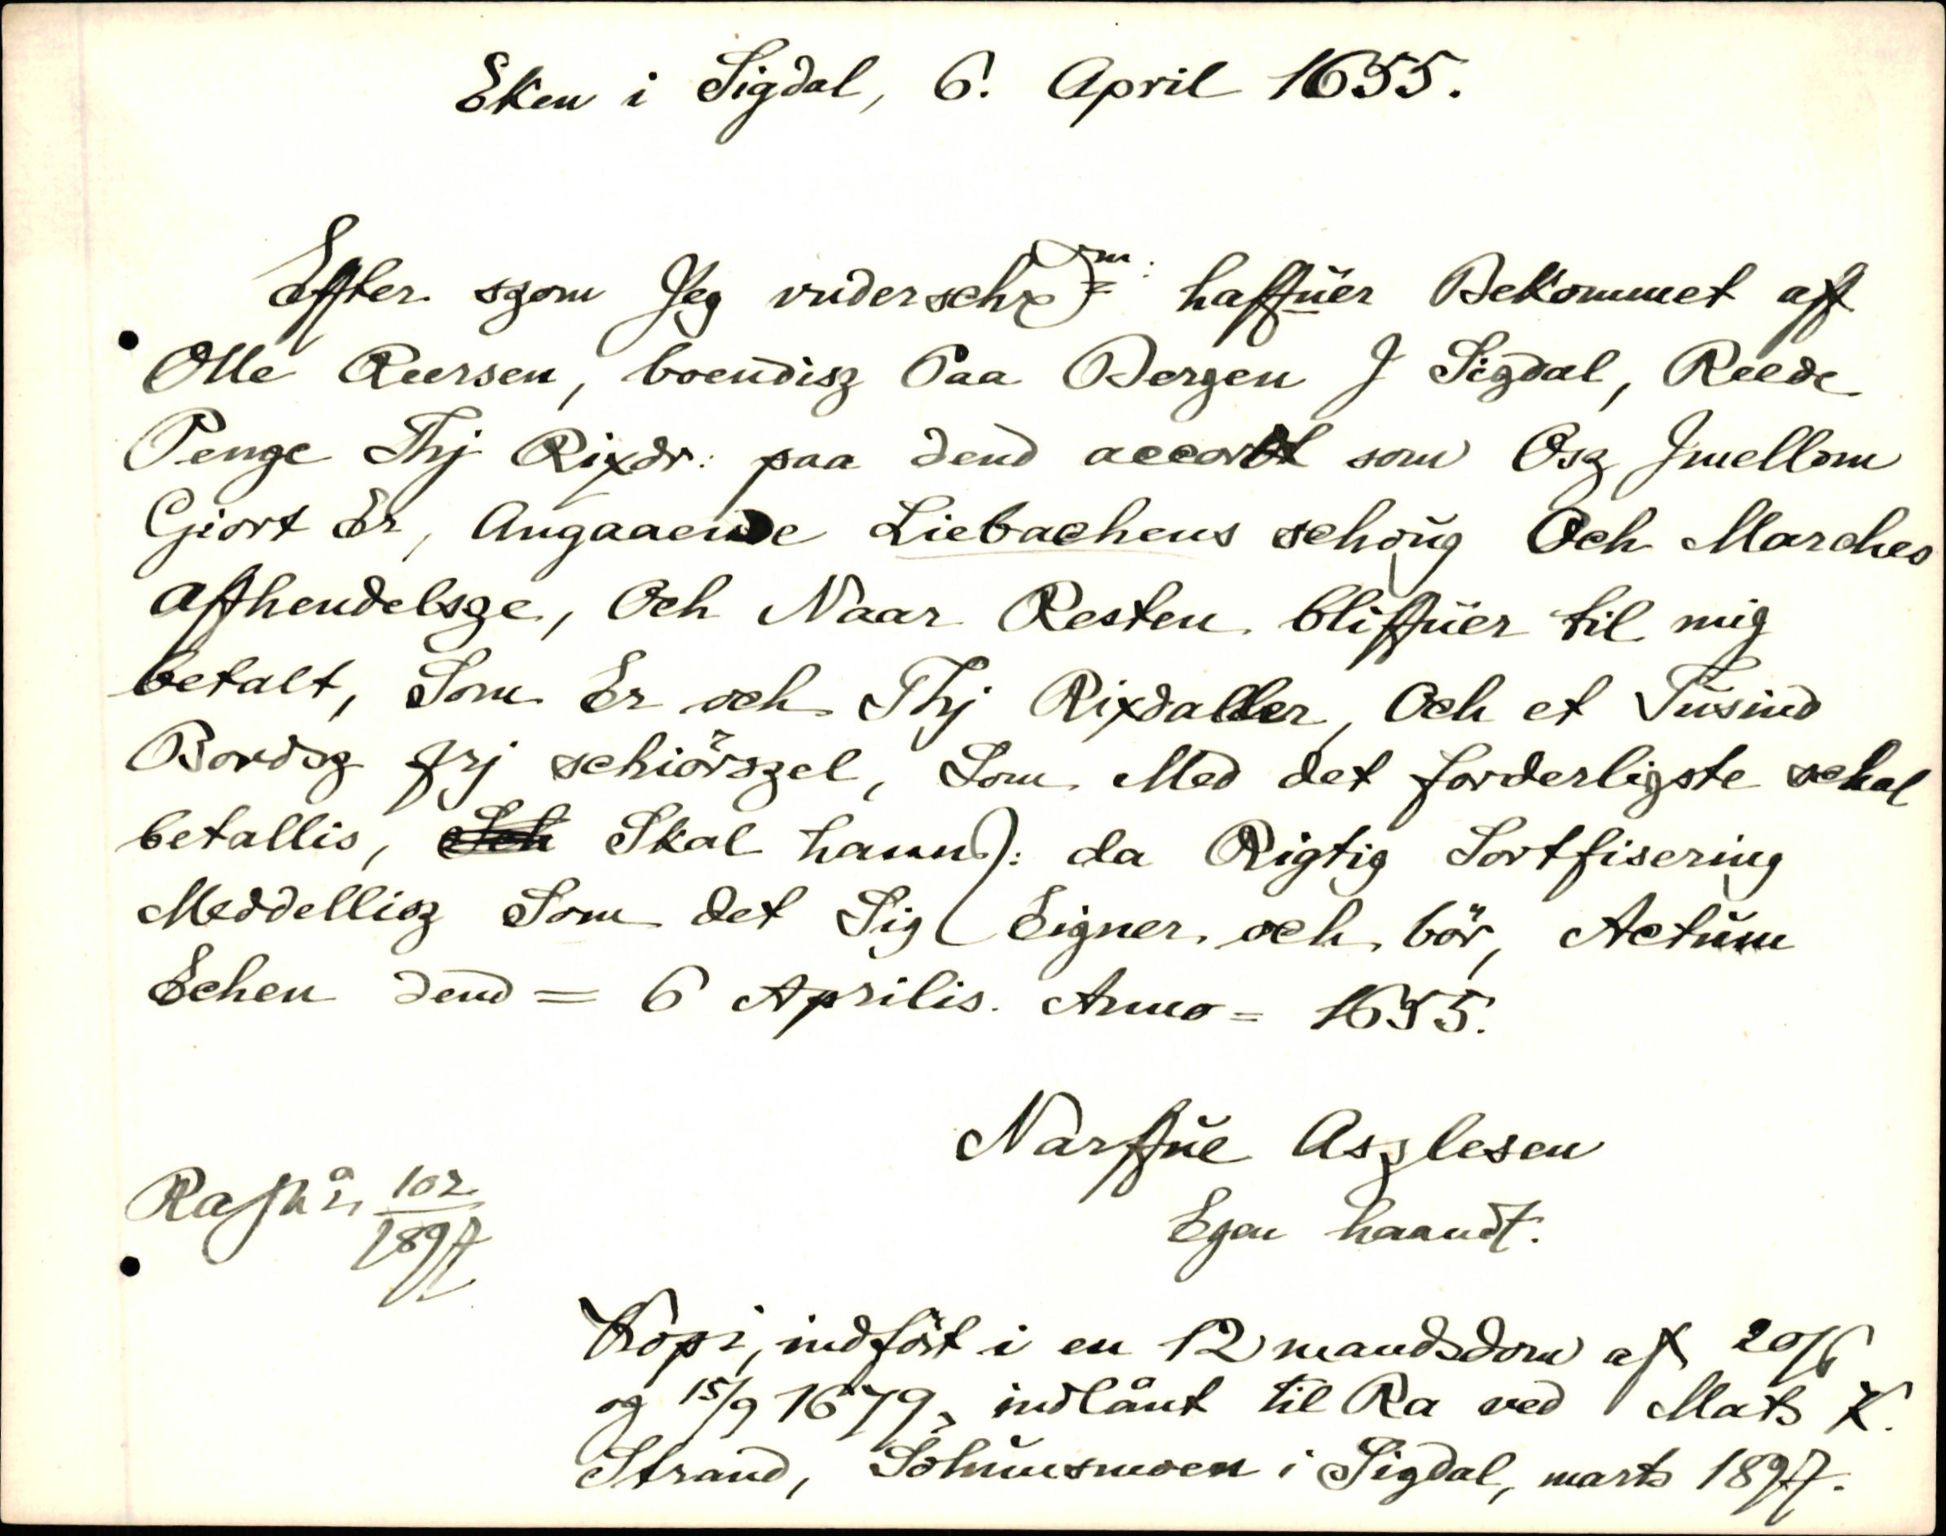 Eken i Sigdal, 6. April 1655.
Effter szom Jeg vnderschr m: haffŭer Bekommet aff
Olle Reersen, boendisz Paa Bergen J Sigdal, Reede
Penge Thj Rixdr: paa dend accordt som Osz Jmellom
Giort Er, Angaaende Liebachens schoŭg Och Marches
Affhendelsze, Och Naar Resten bliffŭer til mig
betalt, Som Er och Thj Rixdaller, Och et Tŭsind
Bordsz frj schiörszel, Som Med det forderligste schal
betallis, Sch Skal hannd: da Rigtig Sortfisering
Meddellisz Som det Sig Eigner och bör, Actŭm
Echen dend = 6 Aprilis. Anno = 1655.
Narffŭe Aszlesen
Egen haandt.
Ra 102
1897
Kopi, indfört i en 12 mandsdom af 20/6
og 15/9 1679, indlånt til Ra ved Mats K.
Strand, i Sigdal, marts 1897.